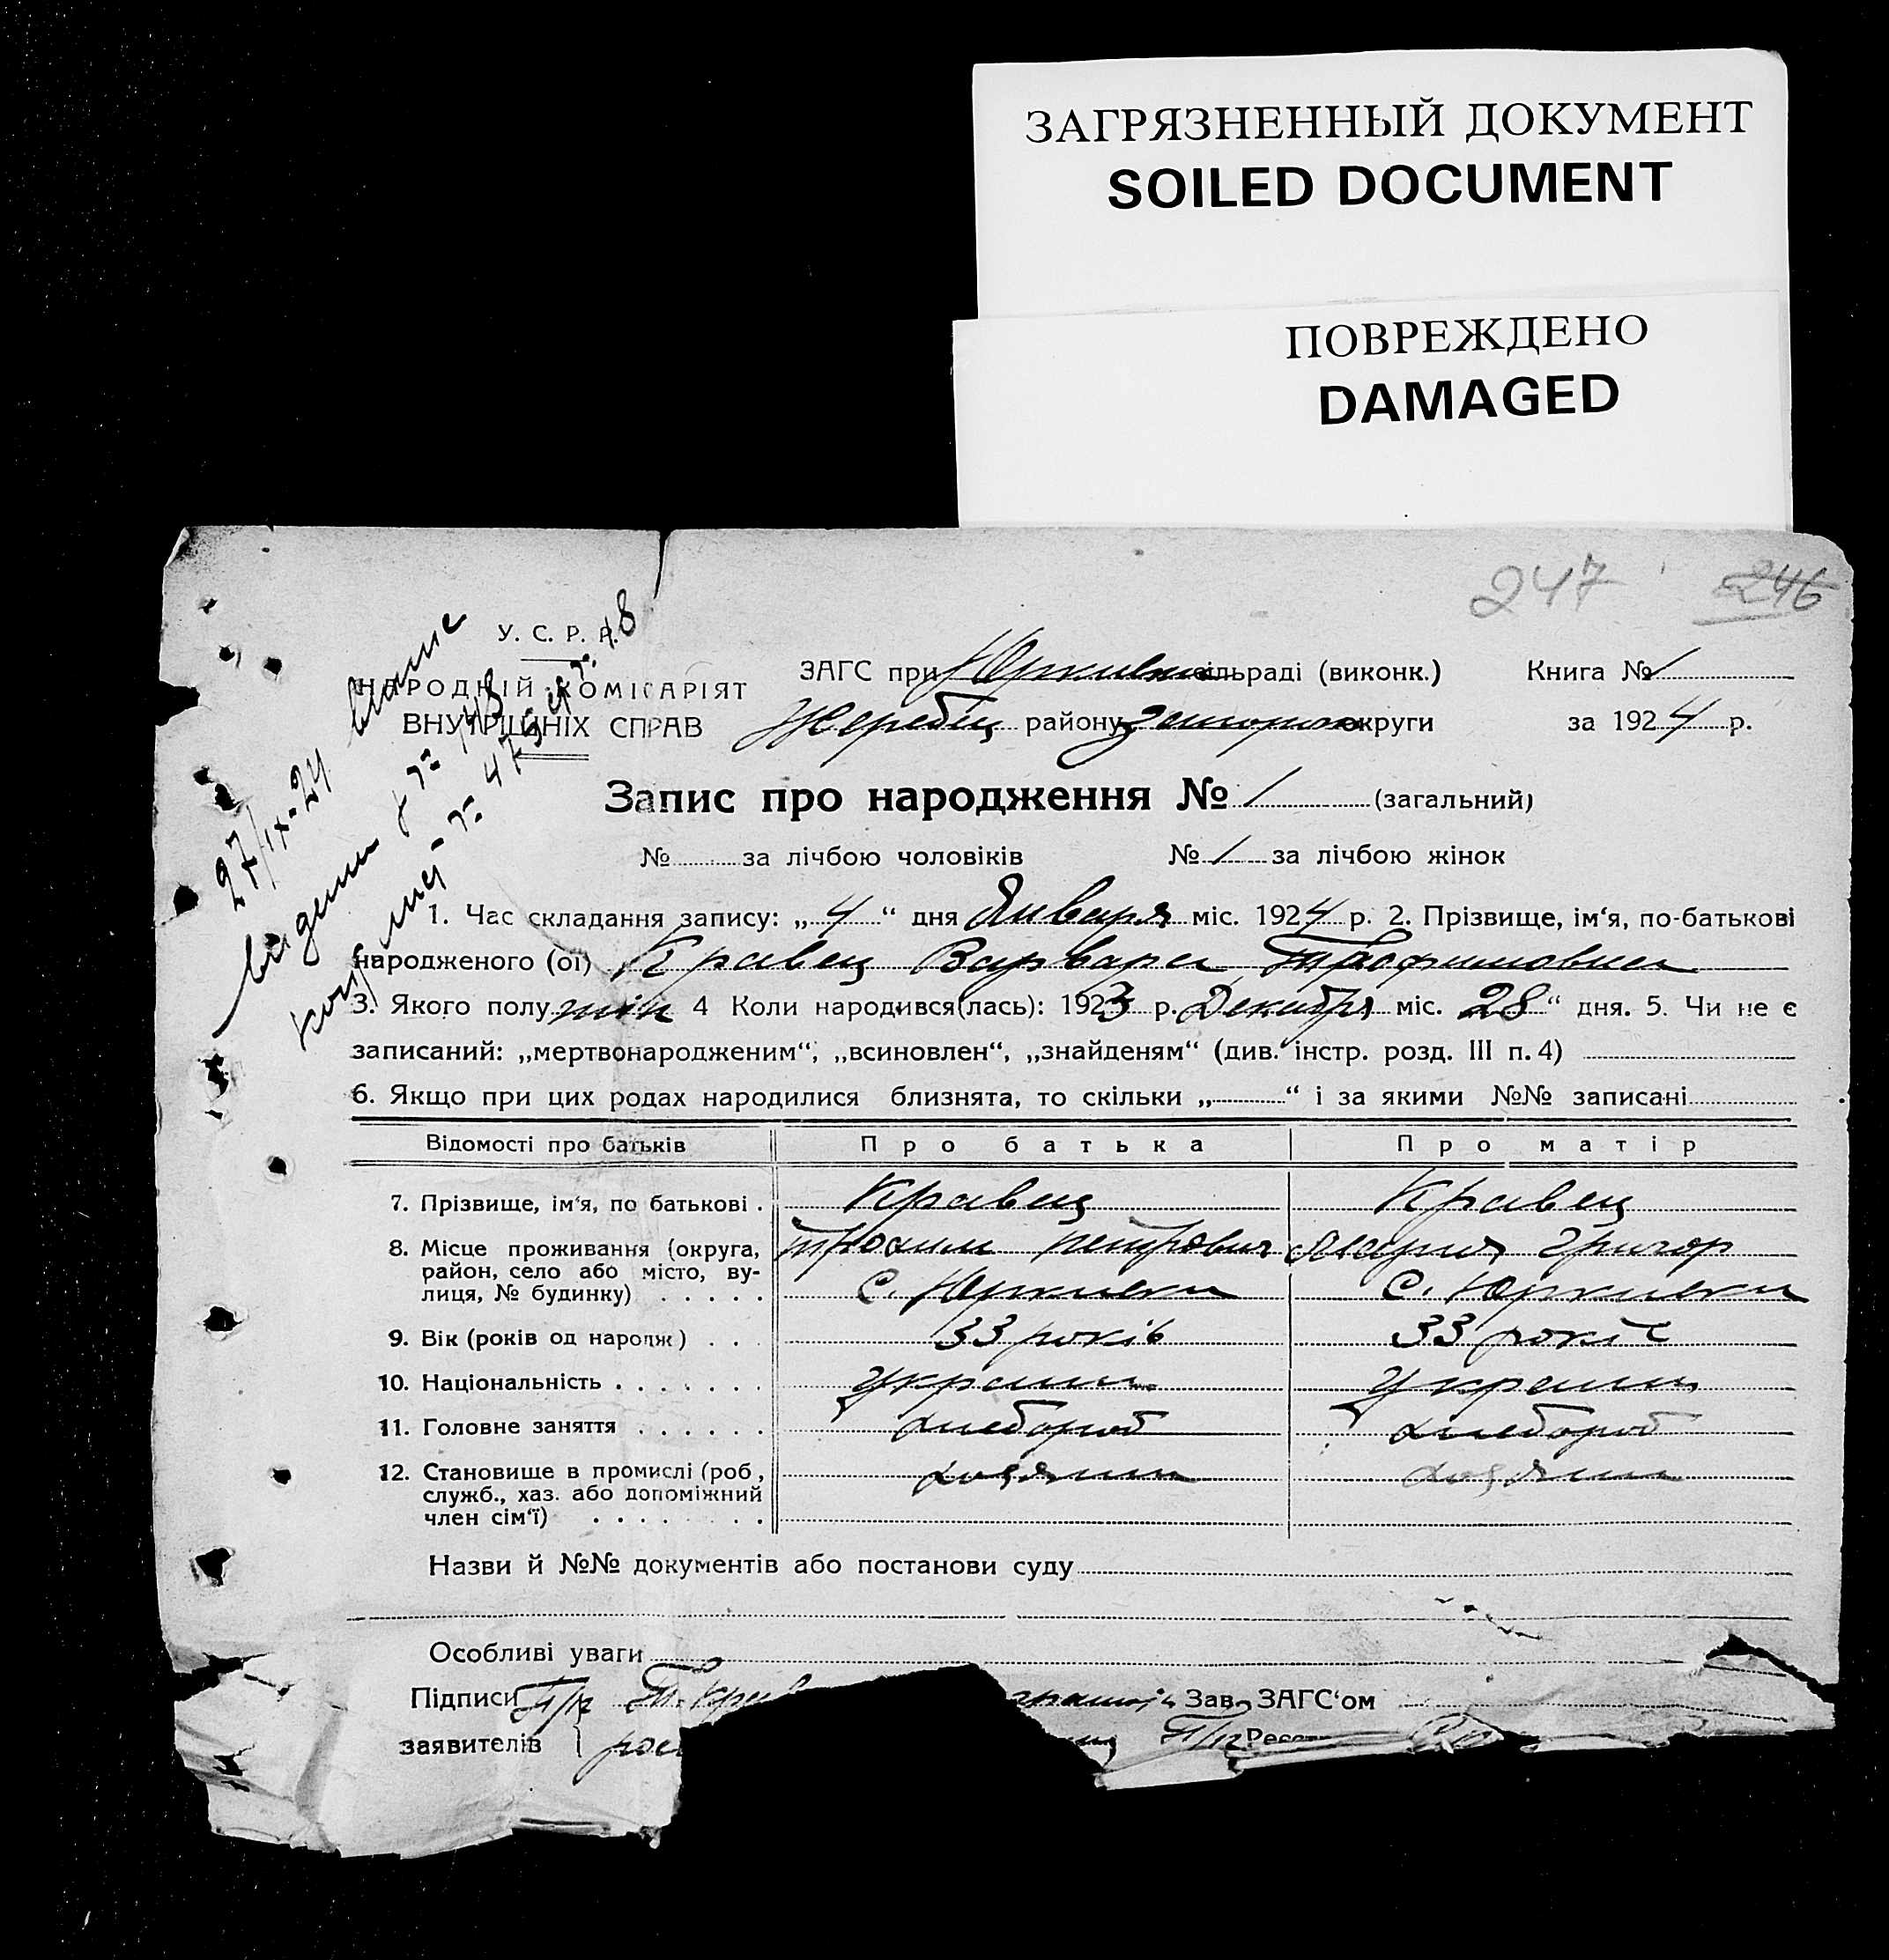 ЗАГРЯЗНЕННЫЙ ДОКУМЕНТ
SOILED DOCUMENT
ПОВРЕЖДЕНО
DAMAGED
247 246
У. С. Р. Р.
НАРОДНІЙ КОМІСАРІЯТ
ВНУТРІШНІХ СПРАВ
27/IX-24
ЗАГС при Юркивск сільраді (виконк.) Книга № 1
Жеребец району округи за 1924 р.
Запис про народження № 1 (загальний)
№ за лічбою чоловіків № 1 за лічбою жінок
1. Час складання запису: „4“ дня Января міс. 1924 р. 2. Прізвище, ім‘я, по-батькові
народженого (ої) Кравец Варвара Трофимовна
3. Якого полу жін 4 Коли народився(лась): 1923 р. Декабря міс. 28“ дня. 5. Чи не є
записаний: „мертвонародженим“, „всиновлен“, „знайденям“ (див. інстр. розд. III п. 4)
6. Якщо при цих родах народилися близнята, то скільки „ “ і за якими №№ записані
Відомості про батьків Про батька Про матір
7. Прізвище, ім‘я, по батькові . Кравец Кравец
8. Місце проживання (округа, Трохим Петрович Мария Григор
район, село або місто, ву-
лиця, № будинку) . . . . . С. Юркивка С. Юркивка
9. Вік (років од народж) . . . 33 років 33 років
10. Національність . . . . . . . Украин Украин
11. Головне заняття . . . . . . хлебороб хлебороб
12. Становище в промислі (роб, хозяин хозяин
служб., хаз. або допоміжний
член сім‘ї) . . . . . . . .
Назви й №№ документів або постанови суду
Особливі уваги
Підписи П/п Т. Крав Зав. ЗАГС‘ом
заявителів П/п Реєстр